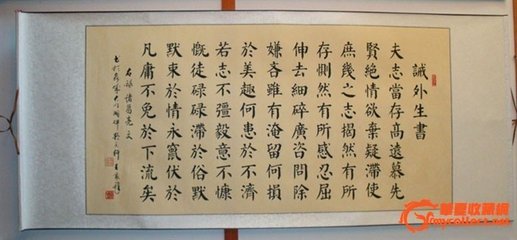 誡外生書
夫志當存高遠慕先
賢絕情欲棄疑滯使
庶幾之志揭然有所
存惻然有所感忍屈
伸去細碎廣咨問除
嫌吝雖有淹留何損
於美趣何患於不濟
若志不彊毅意不慷
慨徒碌碌滯於俗默
默束於情永竄伏於
凡庸不免於下流矣
右錄諸葛亮文